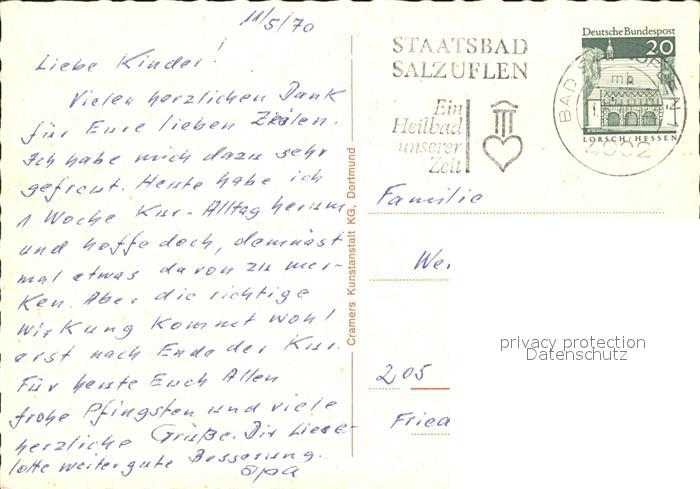 11/5/70
Liebe Kinder!
Vielen herzlichen Dank
für Eure lieben Zeilen.
Ich habe mich dazu sehr
gefreut. Heute habe ich
1 Woche Kur-Alltag herum
und hoffe doch, demnäst
mal etwas davon zu mer-
ken. Aber die richtige
Wirkung kommt wohl
erst nach Ende der Kur.
Für heute Euch Allen
frohe Pfingsten und viele
herzliche Grüße. Dir Liese-
lotte weiter gute Besserung.
Opa
Cramers Kunstanstalt KG, Dortmund
STAATSBAD
SALZUFLEN
Ein
Heilbad
unserer
Zeit
BAD
4902
Deutsche Bundespost
20
LORSCH/HESSEN
Familie
We
205
Friea
privacy protection
Datenschutz